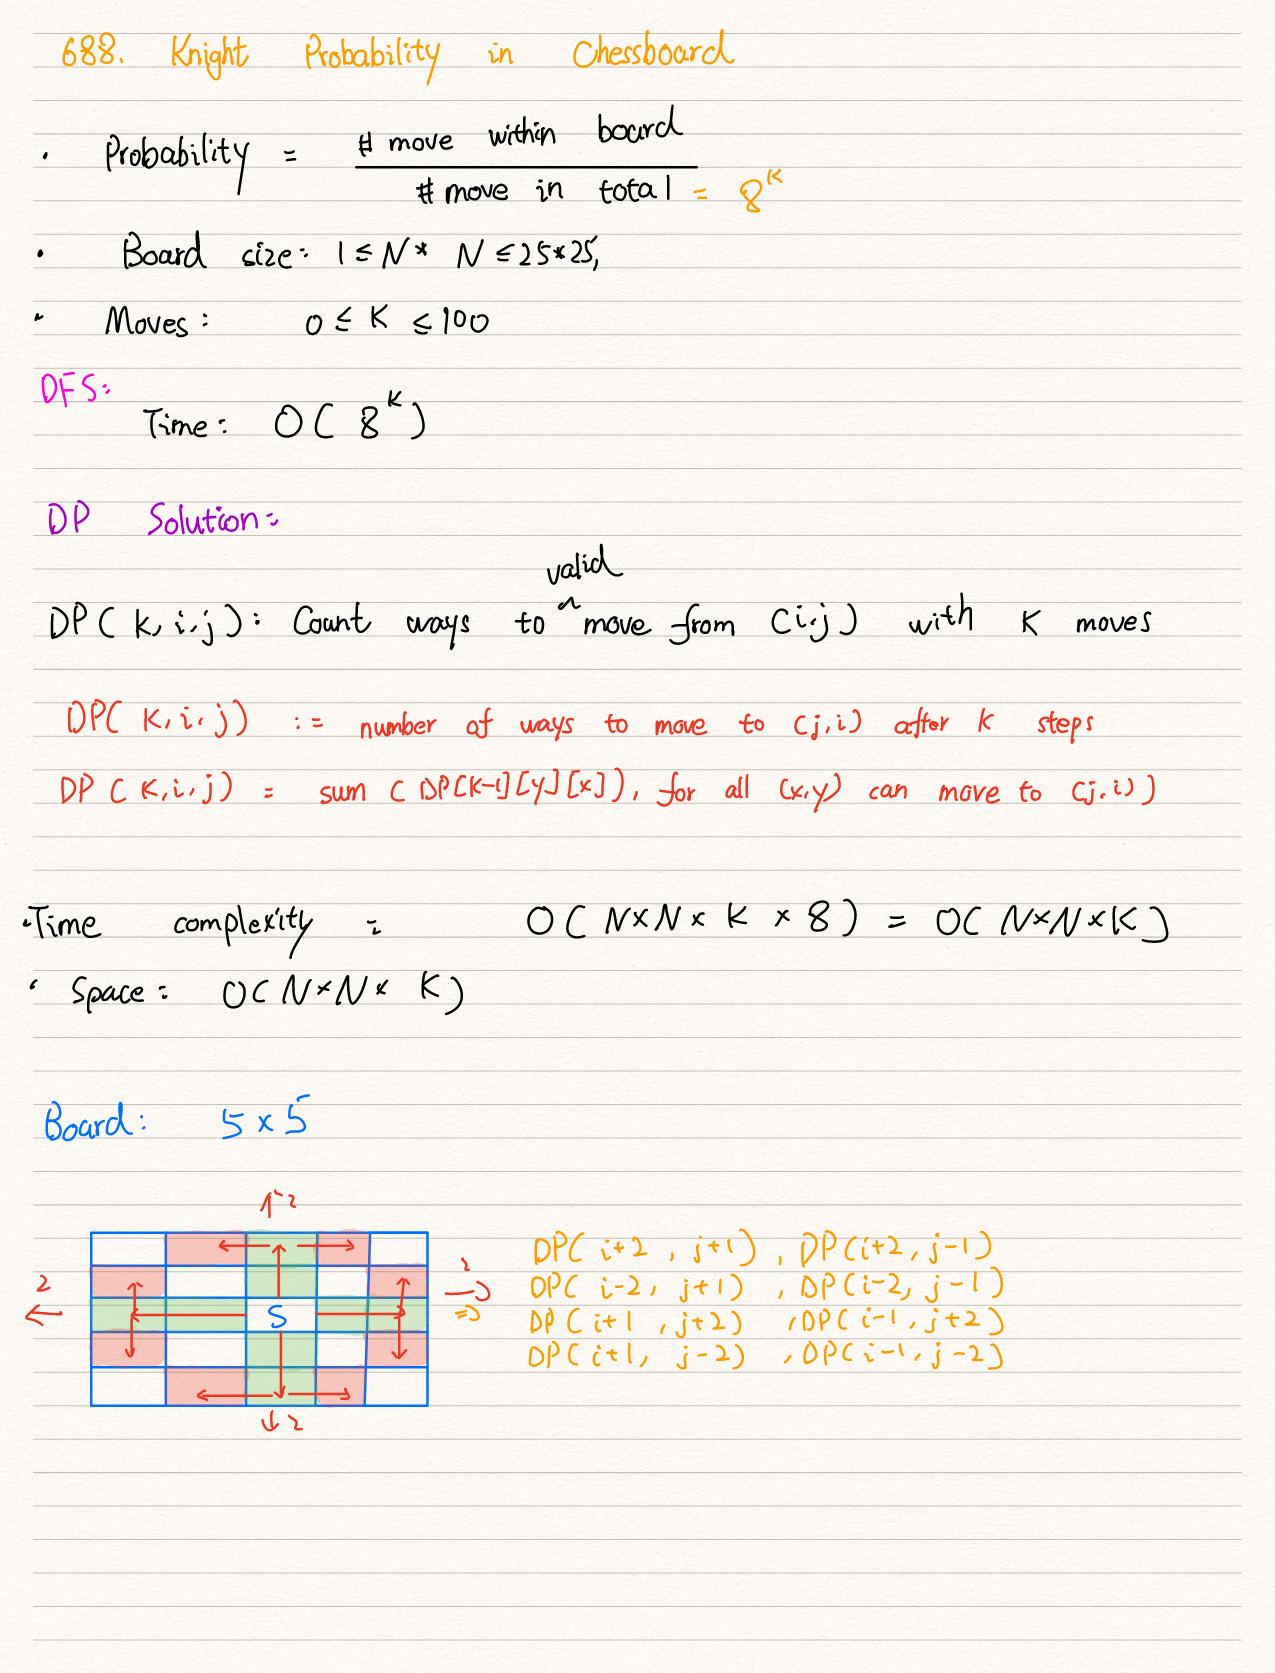 688. Knight Probability in Chessboard
• Probability = # move within board
# move in total = 8^K
• Board size: 1 ≤ N * N ≤ 25*25,
• Moves: 0 ≤ K ≤ 100
DFS:
Time: O( 8^K )
DP Solution:
valid
DP( k, i, j ): Count ways to ^ move from (i,j) with K moves
DP( K, i, j ) := number of ways to move to (j,i) after k steps
DP ( K, i, j ) = sum ( DP[K-1][y][x] ), for all (x,y) can move to (j,i) )
• Time complexity : O( N×N× K × 8 ) = O( N×N×K )
• Space: O( N×N× K )
Board: 5 × 5
↑2
DP( i+2 , j+1 ) , DP( i+2 , j-1 )
2 2
DP( i-2, j+1 ) , DP( i-2, j-1 )
← S → =>
DP( i+1 , j+2 ) , DP( i-1, j+2 )
DP( i+1, j-2 ) , DP( i-1, j-2 )
↓2